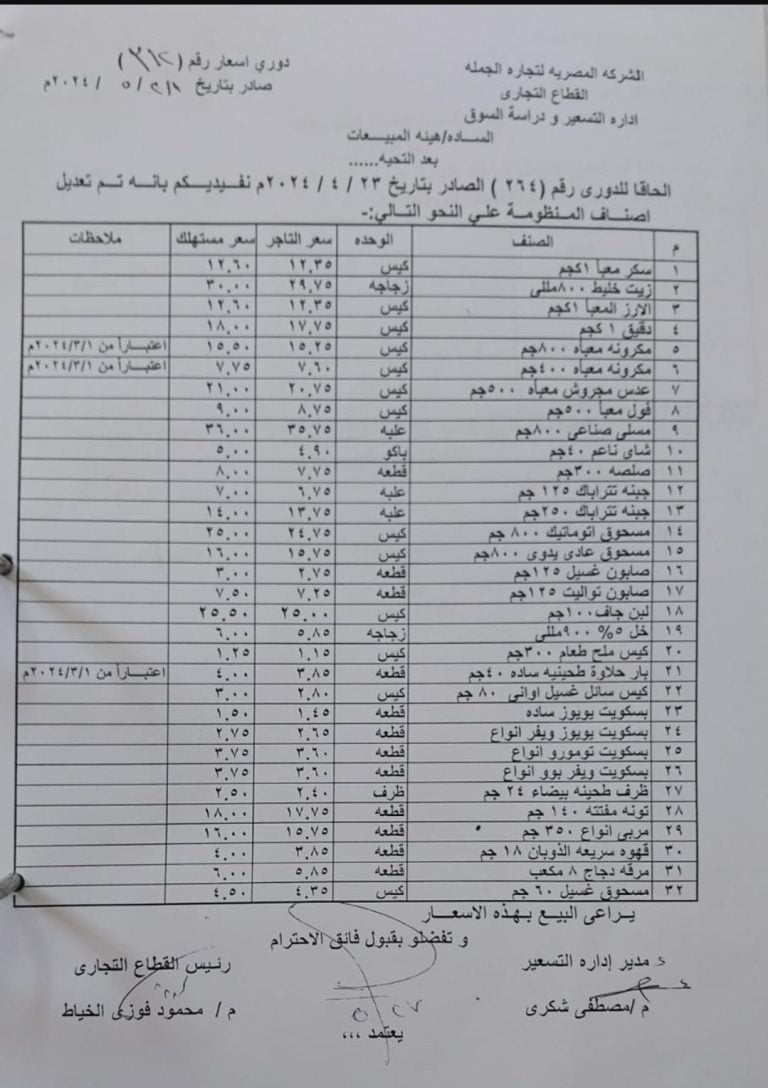 الشركه المصريه لتجاره الجمله
القطاع التجارى
اداره التسعير و دراسة السوق
دوري اسعار رقم (٣١٢)
صادر بتاريخ / ٥ / ٢٠٢٤م
الســاده/هيئه المبيــعات
بعد التحيه......
الحاقا للدورى رقم (٢٦٤) الصادر بتاريخ ٢٣ / ٤ / ٢٠٢٤م نفيديكم بانه تم تعديل
اصناف المنظومة علي النحو التالي:-
م الصنف الوحده سعر التاجر سعر مستهلك ملاحظات
١ سكر معبأ ١كجم كيس ١٢.٣٥ ١٢.٦٠
٢ زيت خليط ٨٠٠مللى زجاجه ٢٩.٧٥ ٣٠.٠٠
٣ الارز المعبأ ١كجم كيس ١٢.٣٥ ١٢.٦٠
٤ دقيق ١ كجم كيس ١٧.٧٥ ١٨.٠٠
٥ مكرونه معبأه ٨٠٠جم كيس ١٥.٢٥ ١٥.٥٠ اعتبـارأ من ٢٠٢٤/٣/١م
٦ مكرونه معبأه ٤٠٠جم كيس ٧.٦٠ ٧.٧٥ اعتبـارأ من ٢٠٢٤/٣/١م
٧ عدس مجروش معبأه ٥٠٠جم كيس ٢٠.٧٥ ٢١.٠٠
٨ فول معبأ ٥٠٠جم كيس ٨.٧٥ ٩.٠٠
٩ مسلى صناعى ٨٠٠جم علبه ٣٥.٧٥ ٣٦.٠٠
١٠ شاى ناعم ٤٠جم باكو ٤.٩٠ ٥.٠٠
١١ صلصه ٣٠٠جم قطعه ٧.٧٥ ٨.٠٠
١٢ جبنه تتراباك ١٢٥ جم علبه ٦.٧٥ ٧.٠٠
١٣ جبنه تتراباك ٢٥٠جم علبه ١٣.٧٥ ١٤.٠٠
١٤ مسحوق اتوماتيك ٨٠٠ جم كيس ٢٤.٧٥ ٢٥.٠٠
١٥ مسحوق عادى يدوى ٨٠٠جم كيس ١٥.٧٥ ١٦.٠٠
١٦ صابون غسيل ١٢٥جم قطعه ٢.٧٥ ٣.٠٠
١٧ صابون تواليت ١٢٥جم قطعه ٧.٢٥ ٧.٥٠
١٨ لبن جاف١٠٠جم كيس ٢٥.٠٠ ٢٥.٥٠
١٩ خل ٥% ٩٠٠مللى زجاجه ٥.٨٥ ٦.٠٠
٢٠ كيس ملح طعام ٣٠٠جم كيس ١.١٥ ١.٢٥
٢١ بار حلاوة طحينيه ساده ٤٠جم قطعه ٣.٨٥ ٤.٠٠ اعتبـارأ من ٢٠٢٤/٣/١م
٢٢ كيس سائل غسيل اوانى ٨٠ جم كيس ٢.٨٠ ٣.٠٠
٢٣ بسكويت يويوز ساده قطعه ١.٤٥ ١.٥٠
٢٤ بسكويت يويوز ويفر انواع قطعه ٢.٦٥ ٢.٧٥
٢٥ بسكويت تومورو انواع قطعه ٣.٦٠ ٣.٧٥
٢٦ بسكويت ويفر بوو انواع قطعه ٣.٦٠ ٣.٧٥
٢٧ ظرف طحينه بيضاء ٢٤ جم ظرف ٢.٤٠ ٢.٥٠
٢٨ تونه مفتته ١٤٠ جم قطعه ١٧.٧٥ ١٨.٠٠
٢٩ مربى انواع ٣٥٠ جم قطعه ١٥.٧٥ ١٦.٠٠
٣٠ قهوه سريعه الذوبان ١٨ جم قطعه ٣.٨٥ ٤.٠٠
٣١ مرقه دجاج ٨ مكعب قطعه ٥.٨٥ ٦.٠٠
٣٢ مسحوق غسيل ٦٠ جم كيس ٤.٣٥ ٤.٥٠
يـراعى البيع بـهـذه الاسعــار
و تفضلو بقبول فائق الاحترام
مدير إداره التسعير
رئيس القطاع التجارى
م /مصطفى شكرى
م / محمود فوزى الخياط
٥ ٢٧
يعتمد ،،،